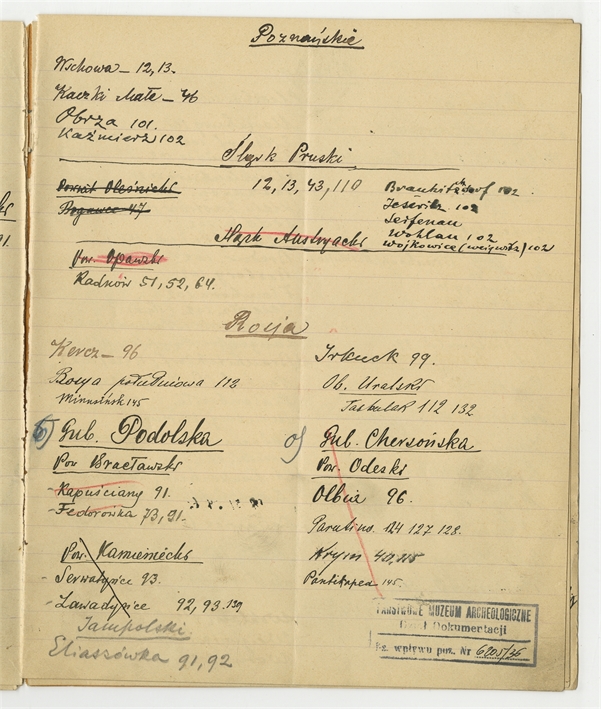 Poznańskie
Wschowa – 12, 13.
Kaczki Małe – 46
Obrza 101.
Kaźmierz 102
Śląsk Pruski
12, 13, 43, 110
Pow. Oleśnicki
47
102.
Jeseritz 102
Seifenau
Wohlau 102
Wojkowice 102
Śląsk Austryacki
Pow. Opawski
Radków 51, 52, 64.
Rosja
Kercz – 96
Rosya południowa 112
Minusińsk 145
Irkuck 99.
Ob. Uralski
112 132
Gub. Podolska
Pow Bracławski
- Kapuściany 91.
- Fedorówka 73, 91.
Pow. Kamieniecki
- Serwatyńce 93.
- Zawadyńce 92, 93. 139
Jampolski
Eliaszówka 91, 92
o) Gub. Chersońska
Pow. Odeski
Olbia 96.
Parutino. 124 127 128.
Krym 40, 115
Pantikapea 145.
PAŃSTWOWE MUZEUM ARCHEOLOGICZNE
Dział Dokumentacji
Ks. wpływu poz. Nr 6205/36
91.